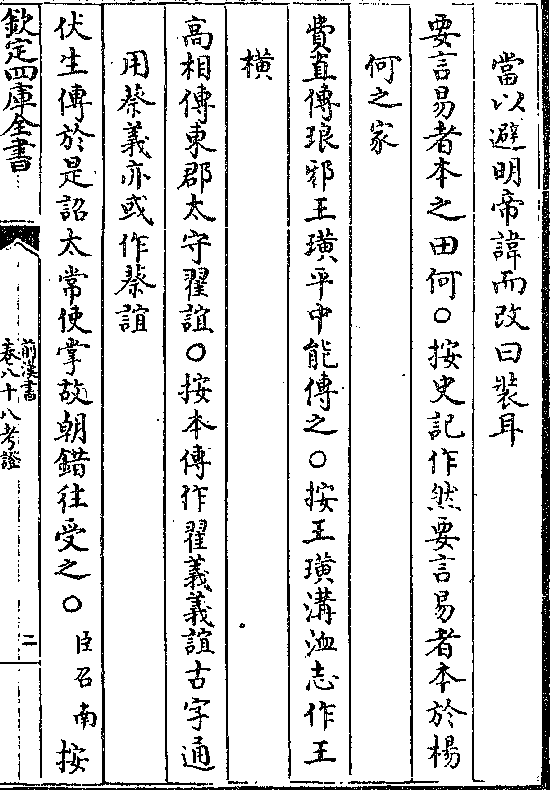 當以避明帝諱而改曰裝耳
要言易者本之田何○按史記作然要言易者本於楊
何之家
費直傳琅邪王璜平中能傳之○按王璜溝洫志作王
橫
高相傳東郡太守翟誼○按本傳作翟義義誼古字通
用蔡義亦或作蔡誼
伏生傳於是詔太常使掌故朝錯往受之○臣召南按
欽定四庫全書
前漢書
卷八十八考證
二